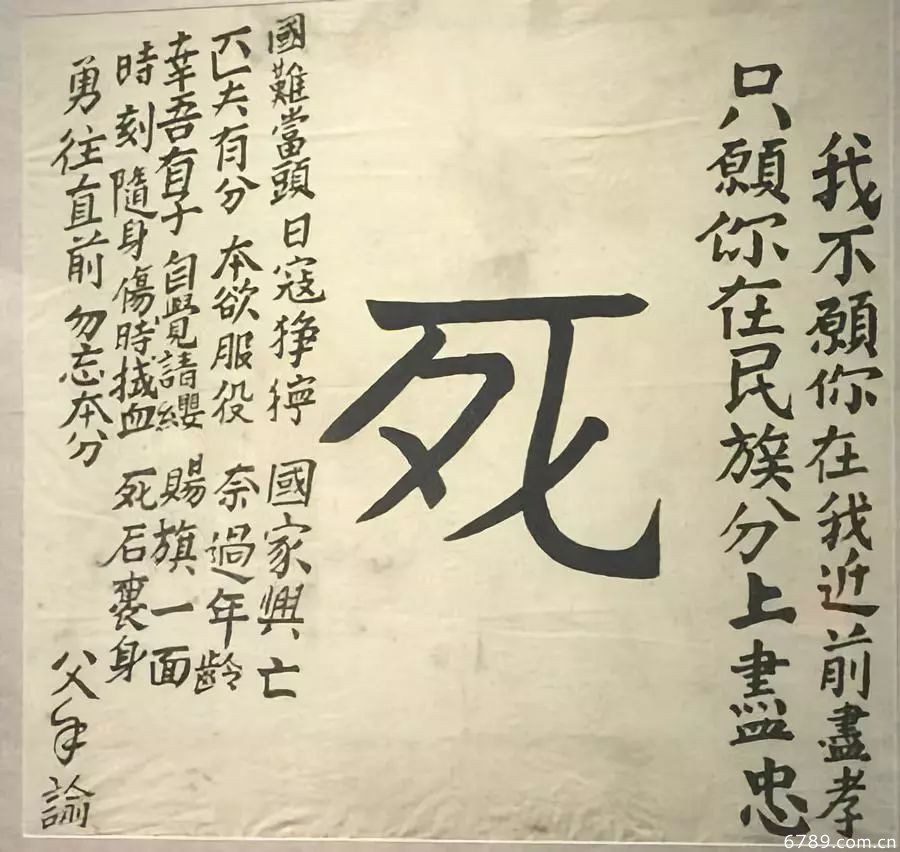 我不願你在我近前盡孝
只願你在民族分上盡忠
死
國難當頭 日寇猙獰 國家興亡
匹夫有分 本欲服役 奈過年齡
幸吾有子 自覺請纓 賜旗一面
時刻隨身 傷時拭血 死后裹身
勇往直前 勿忘本分
父手諭
6789.com.cn